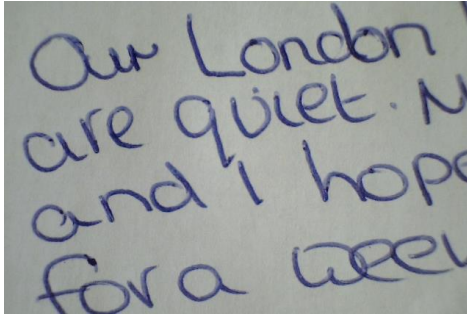 Our London
are quiet. N
and I hope
for a week